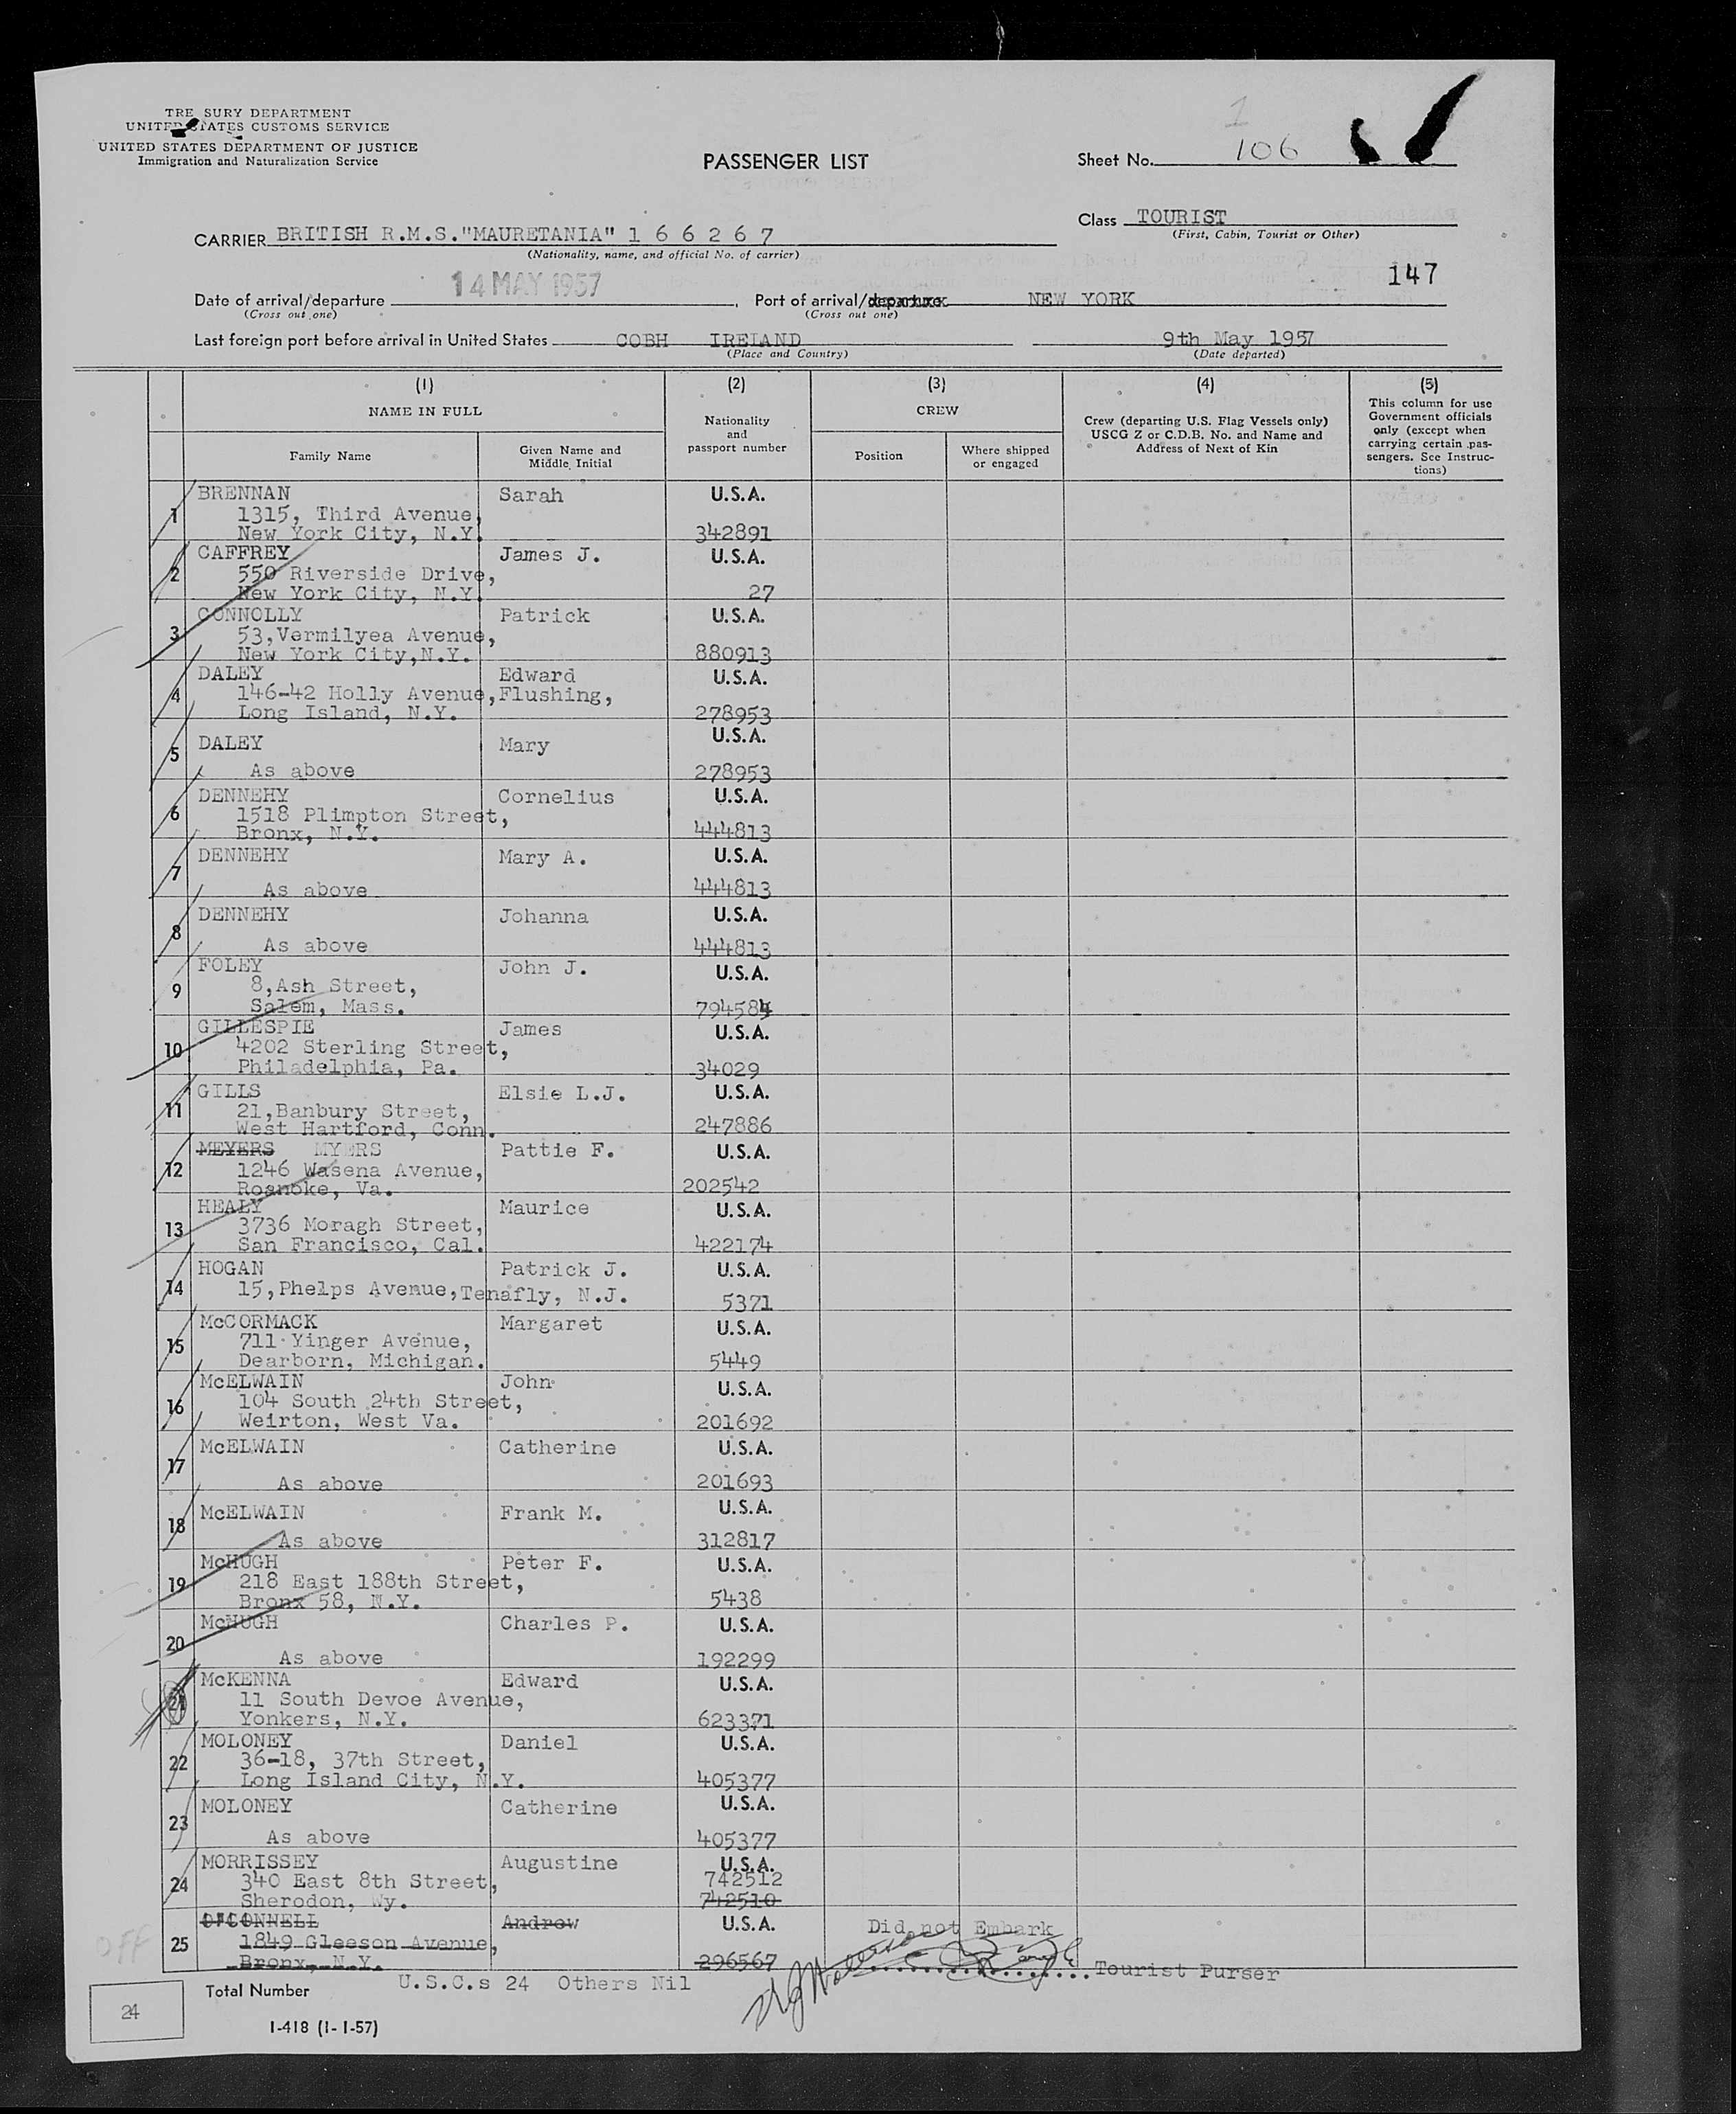 TRE SURY DEPARTMENT
UNITED STATES CUSTOMS SERVICE
UNITED STATES DEPARTMENT OF JUSTICE
Immigration and Naturalization Service
PASSENGER LIST
1
Sheet No. 106
Class TOURIST
(First, Cabin, Tourist or Other)
CARRIER BRITISH R.M.S."MAURETANIA" 1 6 6 2 6 7
(Nationality, name, and official No. of carrier)
147
Date of arrival/departure 14 MAY 1957, Port of arrival/departure NEW YORK
(Cross out one) (Cross out one)
Last foreign port before arrival in United States COBH IRELAND 9th May 1957
(Place and Country) (Date departed)
(1) (2) (3) (4) (5)
NAME IN FULL
Family Name
Given Name and Middle Initial
Nationality
and
passport number
CREW
Position
Where shipped
or engaged
Crew (departing U.S. Flag Vessels only)
USCG Z or C.D.B. No. and Name and
Address of Next of Kin
This column for use
Government officials
only (except when
carrying certain pas-
sengers. See Instruc-
tions)
1 BRENNAN Sarah U.S.A.
1315, Third Avenue,
New York City, N.Y. 342891
2 CAFFREY James J. U.S.A.
550 Riverside Drive,
New York City, N.Y. 27
3 CONNOLLY Patrick U.S.A.
53,Vermilyea Avenue,
New York City,N.Y. 880913
4 DALEY Edward U.S.A.
146-42 Holly Avenue,Flushing,
Long Island, N.Y. 278953
5 DALEY Mary U.S.A.
As above 278953
6 DENNEHY Cornelius U.S.A.
1518 Plimpton Street,
Bronx, N.Y. 444813
7 DENNEHY Mary A. U.S.A.
As above 444813
8 DENNEHY Johanna U.S.A.
As above 444813
9 FOLEY John J. U.S.A.
8,Ash Street,
Salem, Mass.
10 GILLESPIE James U.S.A.
4202 Sterling Street,
Philadelphia, Pa. 34029
11 GILLS Elsie L.J. U.S.A.
21,Banbury Street,
West Hartford, Conn. 247886
12 MEYERS MYERS Pattie F. U.S.A.
1246 Wasena Avenue,
Roanoke, Va. 202542
13 HEALY Maurice U.S.A.
3736 Moragh Street,
San Francisco, Cal. 422174
14 HOGAN Patrick J. U.S.A.
15,Phelps Avenue,Tenafly, N.J. 5371
15 McCORMACK Margaret U.S.A.
711 Yinger Avenue,
Dearborn, Michigan. 5449
16 McELWAIN John U.S.A.
104 South 24th Street,
Weirton, West Va. 201692
17 McELWAIN Catherine U.S.A.
As above 201693
18 McELWAIN Frank M. U.S.A.
As above 312817
19 McHUGH Peter F. U.S.A.
218 East 188th Street,
Bronx 58, N.Y. 5438
20 McHUGH Charles P. U.S.A.
As above 192299
21 McKENNA Edward U.S.A.
11 South Devoe Avenue,
Yonkers, N.Y. 623371
22 MOLONEY Daniel U.S.A.
36-18, 37th Street,
Long Island City, N.Y. 405377
23 MOLONEY Catherine U.S.A.
As above 405377
24 MORRISSEY Augustine U.S.A.
340 East 8th Street, 742512
Sherodon, Wy. 742510
25 O'CONNELL Andrew U.S.A. Did not Embark
OFF 1849 Gleeson Avenue,
Bronx, N.Y. 296567 Tourist Purser
24 Total Number U.S.C.s 24 Others Nil
I-418 (1-1-57)